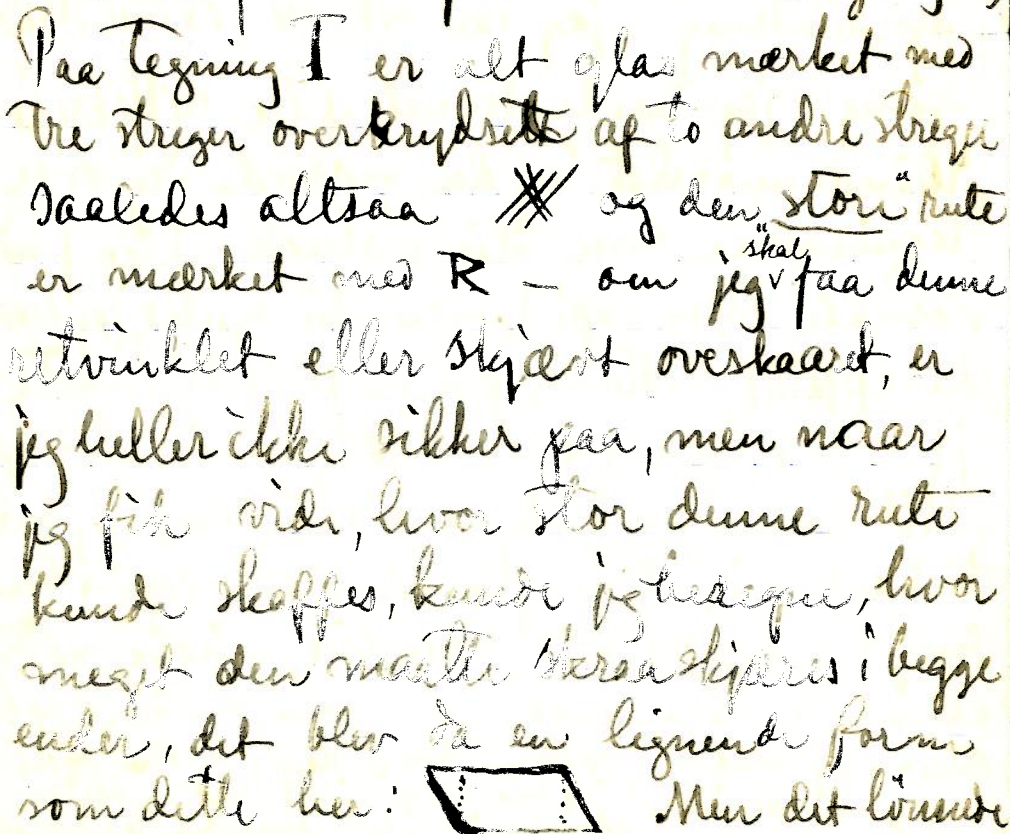 Paa Tegning I er alt glas mærket med
tre streger overkrydsett af to andre streger
saaledes altsaa og den "store" rute
er mærket med R – om jeg skal faa denne
retvinklet eller skjævt overskaaret, er
jeg heller ikke sikker paa, men naar
jeg fik vide, hvor stor denne rute
kunde skaffes, kunde jeg beregne, hvor
meget den maatte skraaskjæres i begge
ender, det blev da en lignende form
som dette her: Men det lönnede